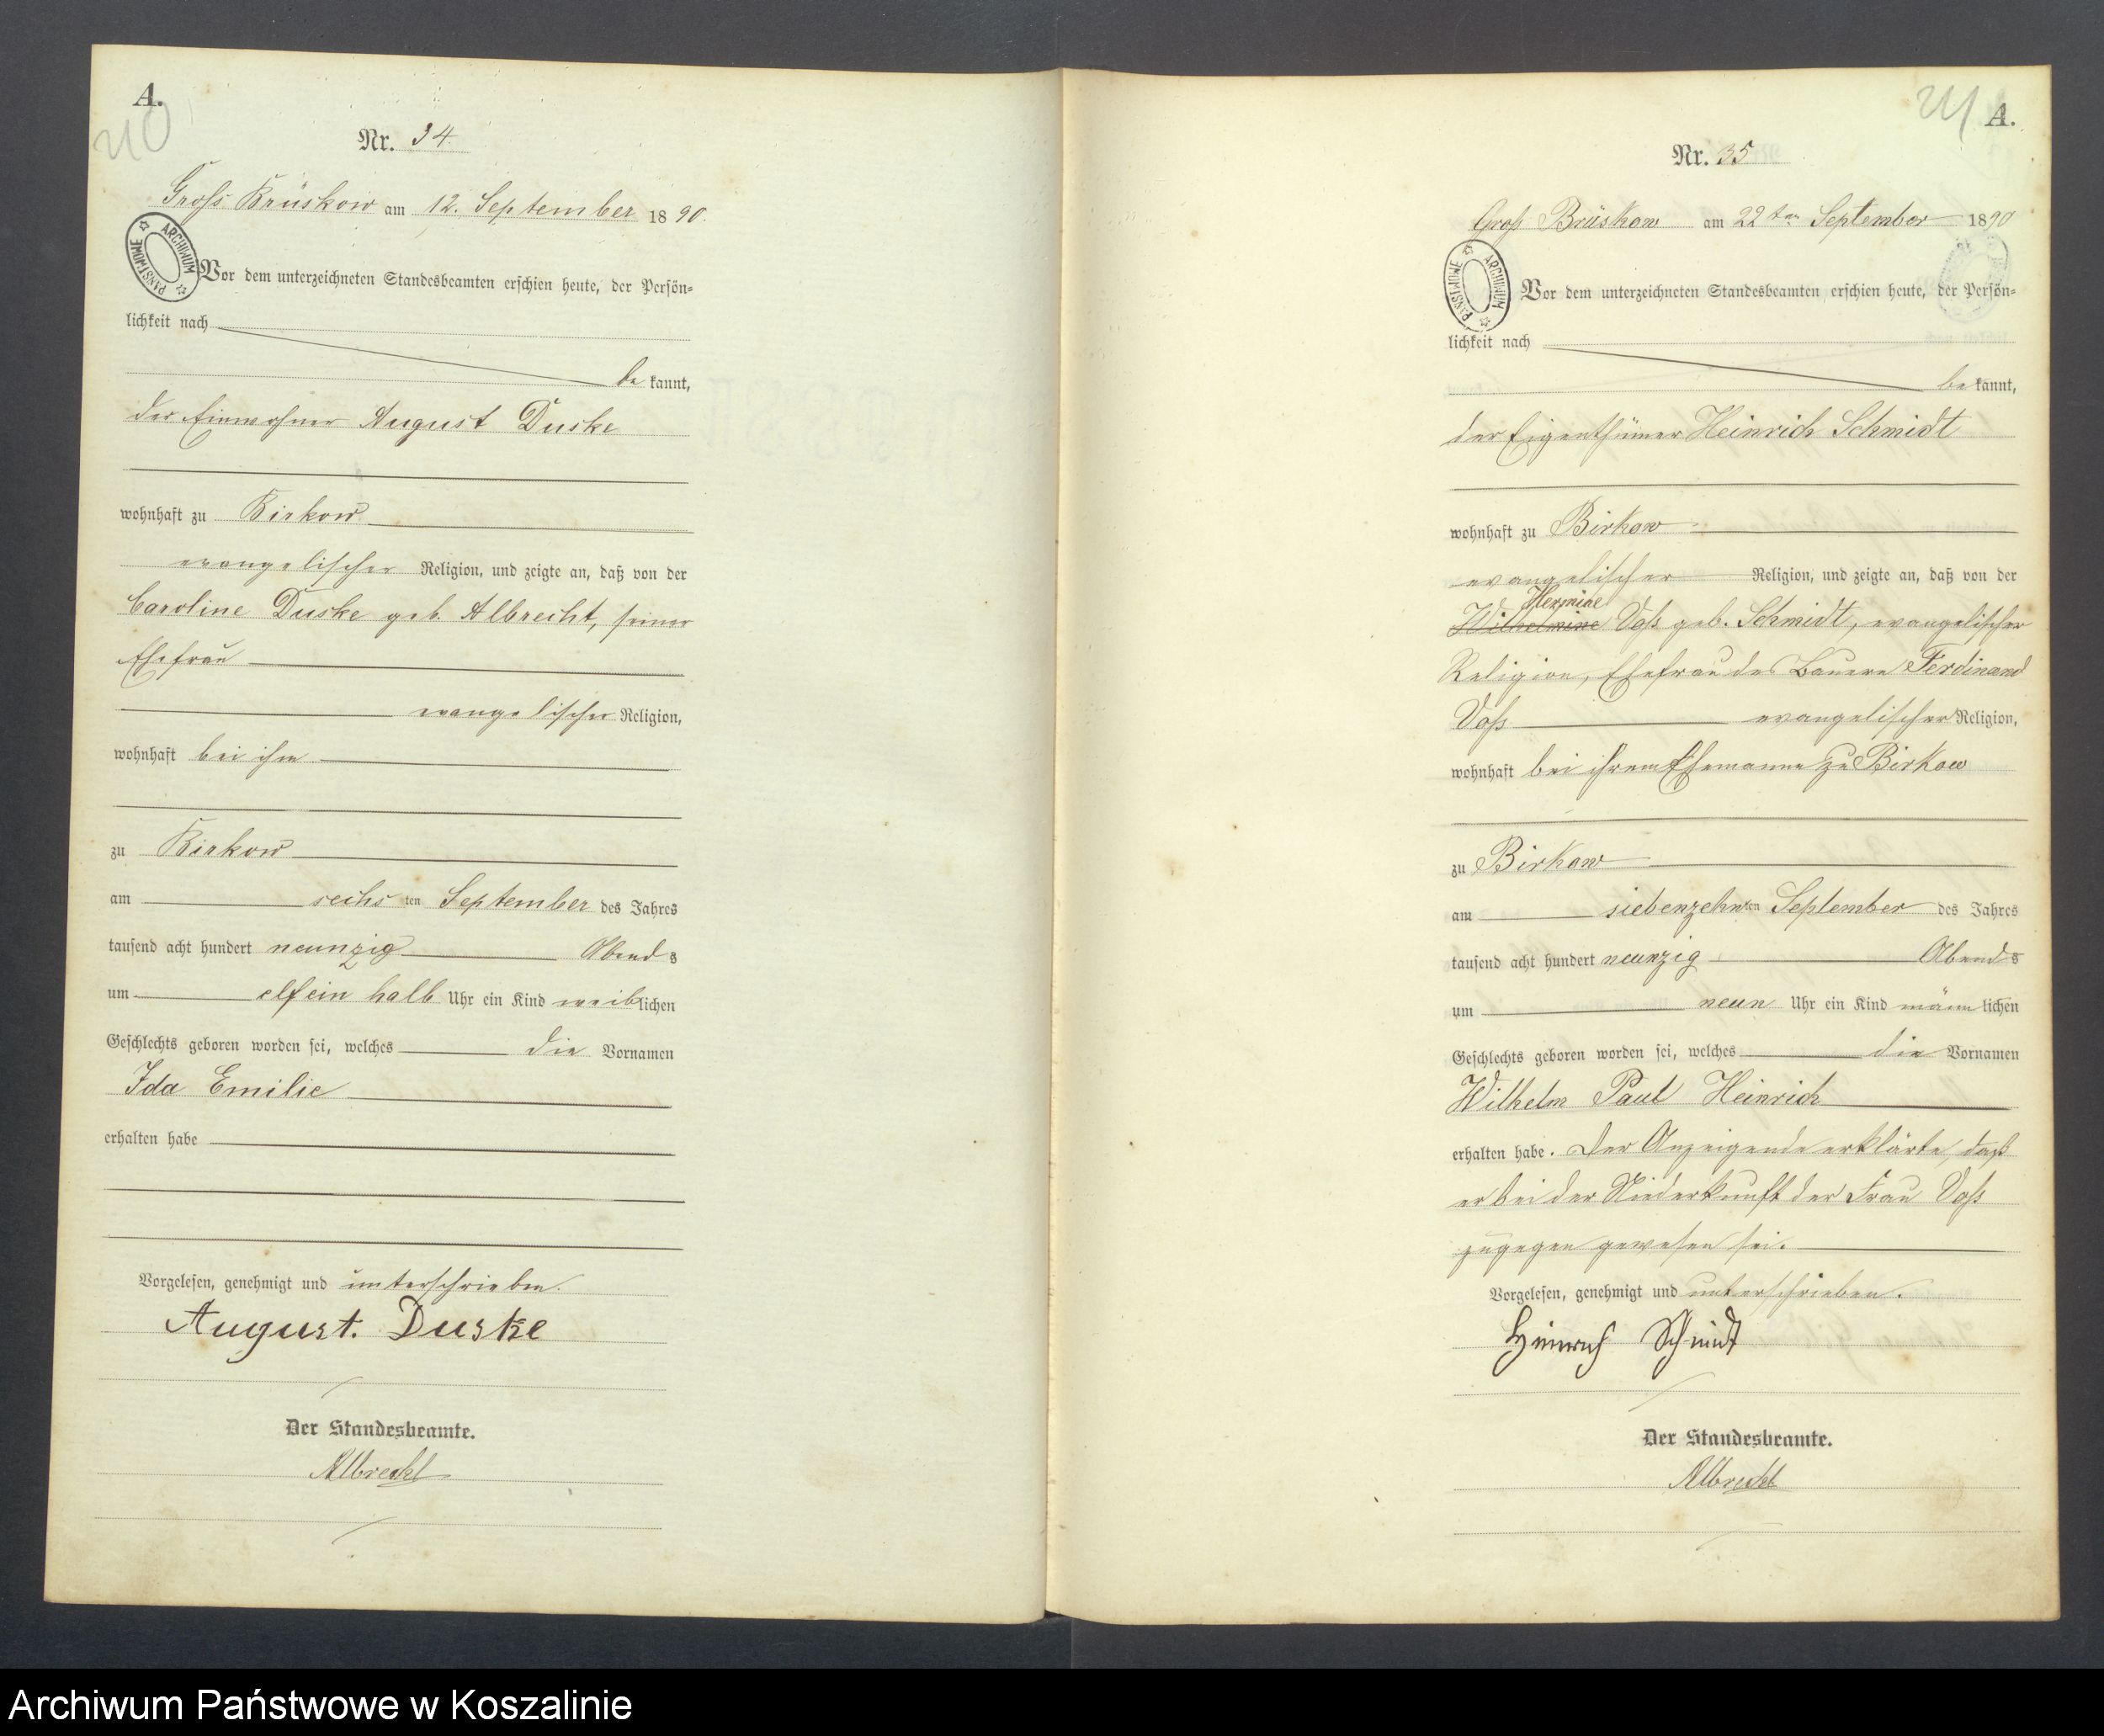 A.
40
Nr. 34.
Groß Brüskow am 12. September 1890.
ARCHIWUM PAŃSTWOWE
Vor dem unterzeichneten Standesbeamten erschien heute, der Persön-
lichkeit nach
be kannt,
der Einwohner August Duske
wohnhaft zu Birkow
evangelischer Religion, und zeigte an, daß von der
Caroline Duske geb. Albrecht, seiner
Ehefrau
evangelischer Religion,
wohnhaft bei ihm
zu Birkow
am sechs ten September des Jahres
tausend acht hundert neunzig Abend s
um elfein halb Uhr ein Kind weiblichen
Geschlechts geboren worden sei, welches die Vornamen
Ida Emilie
erhalten habe
Vorgelesen, genehmigt und unterschrieben.
August. Duske
Der Standesbeamte.
Albrecht
41 A.
Nr. 35
Groß Brüskow am 22ten September 1890
ARCHIWUM PAŃSTWOWE
Vor dem unterzeichneten Standesbeamten erschien heute, der Persön-
lichkeit nach
be kannt,
der Eigenthümer Heinrich Schmidt
wohnhaft zu Birkow
evangelischer Religion, und zeigte an, daß von der
Hermine
Wilhelmine Voß geb. Schmidt, evangelischer
Religion, Ehefrau des Bauern Ferdinand
Voß evangelischer Religion,
wohnhaft bei ihrem Ehemanne zu Birkow
zu Birkow
am siebenzehnten September des Jahres
tausend acht hundert neunzig Abends
um neun Uhr ein Kind männlichen
Geschlechts geboren worden sei, welches die Vornamen
Wilhelm Paul Heinrich
erhalten habe. Der Anzeigende erklärte, daß
er bei der Niederkunft der Frau Voß
zugegen gewesen sei.
Vorgelesen, genehmigt und unterschrieben.
Heinrich Schmidt
Der Standesbeamte.
Albrecht
Archiwum Państwowe w Koszalinie